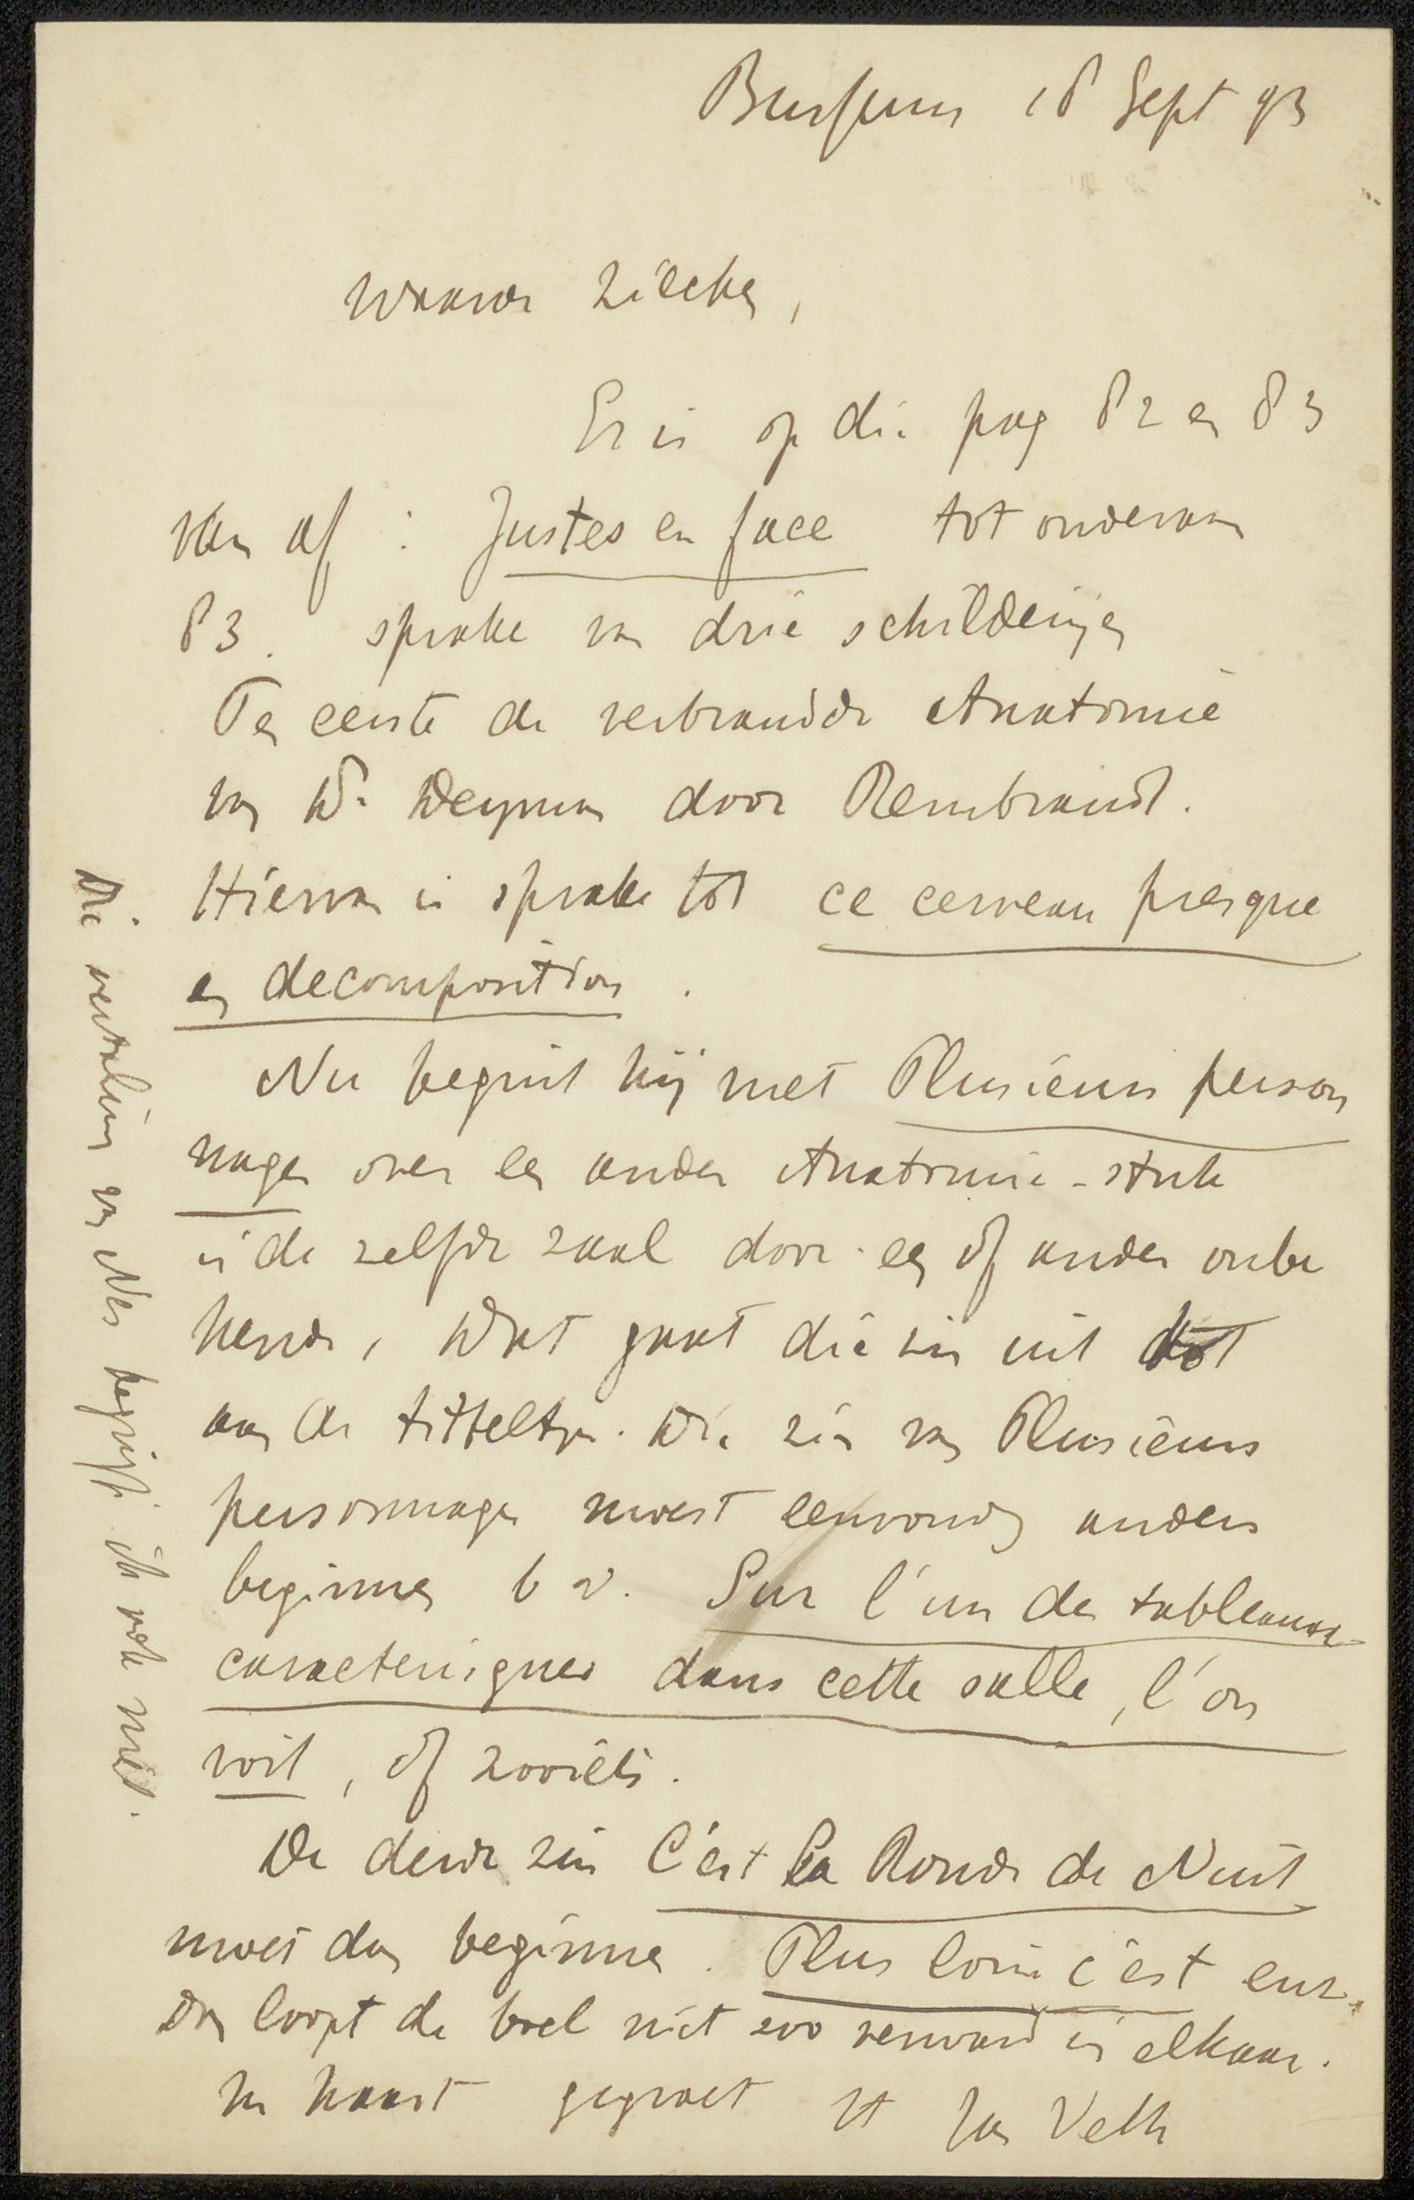 Bussum 18 Sept 93
Waarde Zilcken,
Er is op die pag 82 en 83
van af : Justes en face tot onderaan
83. sprake van drie schilderijen
Ten eerste de verbrande Anatomie
van Dr Deyman door Rembrandt.
Hiervan is sprake tot ce cerveau presque
en decomposition.
Nu begint hij met Plusieurs person
nages over een ander Anatomie-stuk
in de zelfde zaal door een of ander onbe
kende, Dat gaat die zin uit tot
aan de titteltjes. Die zin van Plusieurs
personnages moest eenvoudig anders
beginnen b v. Sur l'un des tableaux
caracterisques dans cette salle, l'on
voit, of zooiets.
De derde zin C'est La Ronde de Nuit
moet dan beginnen. Plus loin c'est enz.
Dan loopt de boel niet zoo verward in elkaar.
In haast gegroet Jan Veth
Die vertaling van Nes begrijp ik ook niet.